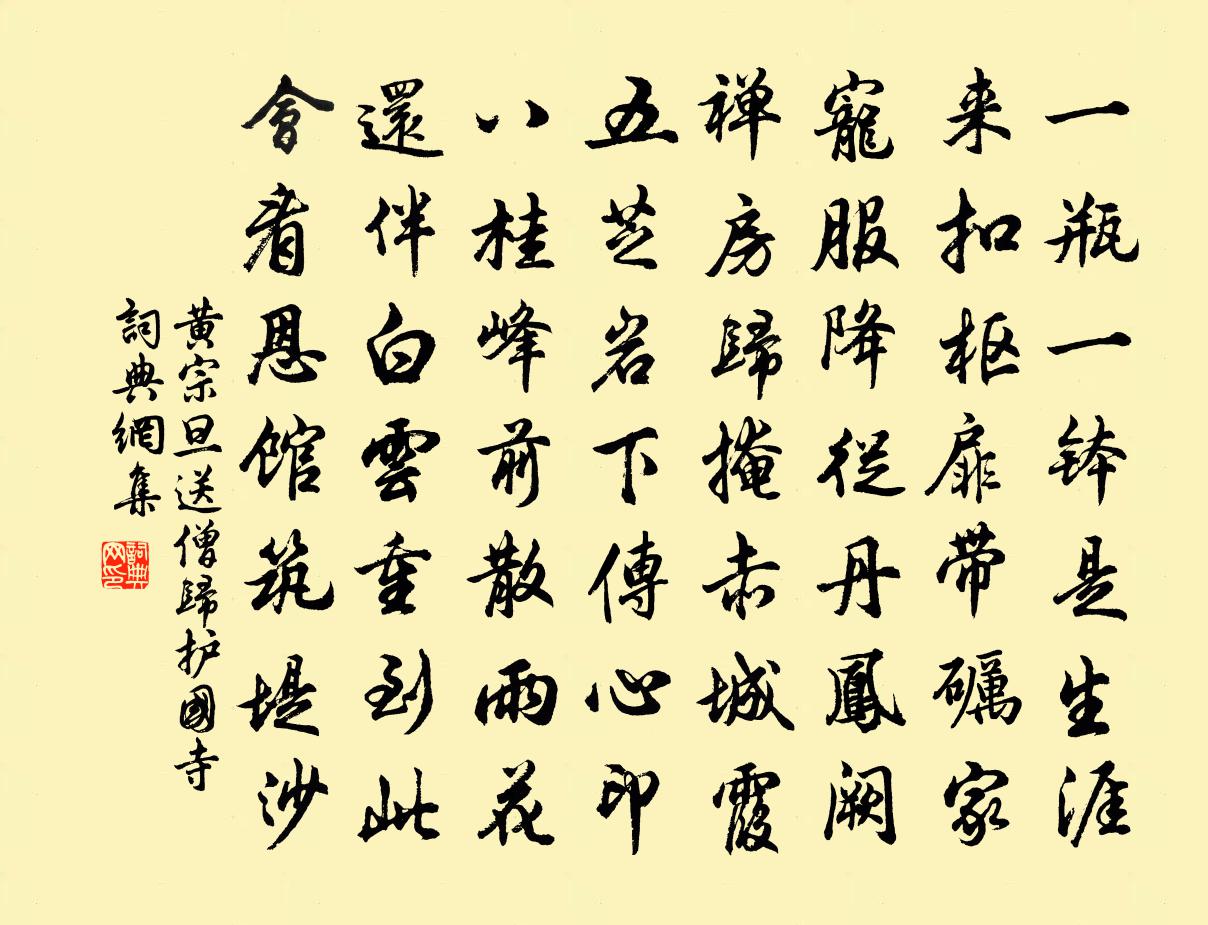 一瓶一鉢是生涯
来扣枢扉带礪家
寵服降從丹鳳闕
禅房歸掩赤城霞
五芝岩下傳心印
八桂峰前散雨花
還伴白雲重到此
會看恩館筑堤沙
黄宗旦送僧歸护國寺
詞典網集
詞典
网印